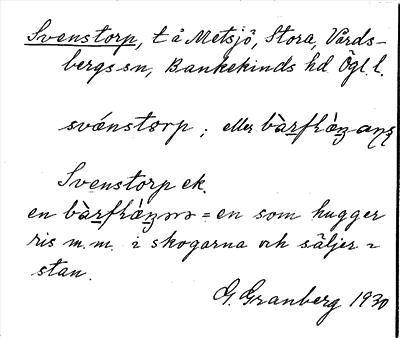 Svenstorp, t å Metsjö, Stora, Vårds-
bergs sn, Bankekinds hd Ögl. l.
svænstorp ; eller
Svenstorp ek.
en = en som hugger
ris m.m. i skogarna och säljer i
stan.
G. Granberg 1930